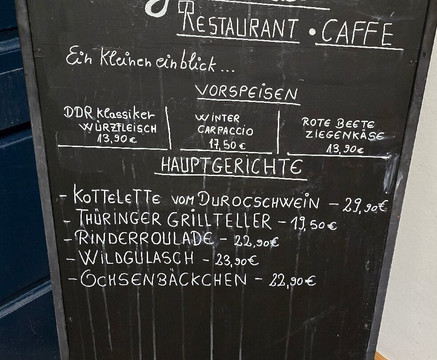 RESTAURANT • CAFFE
Ein kleinen einblick...
VORSPEISEN
DDR Klassiker
WÜRZFLEISCH
13,90€
WINTER
CARPACCIO
17,50€
ROTE BEETE
ZIEGENKÄSE
13,90€
HAUPTGERICHTE
- KOTTELETTE VOM DUROCSCHWEIN - 29,90€
- THÜRINGER GRILLTELLER - 19,50€
- RINDERROULADE - 22,90€
- WILDGULASCH - 23,90€
- OCHSENBÄCKCHEN - 22,90€